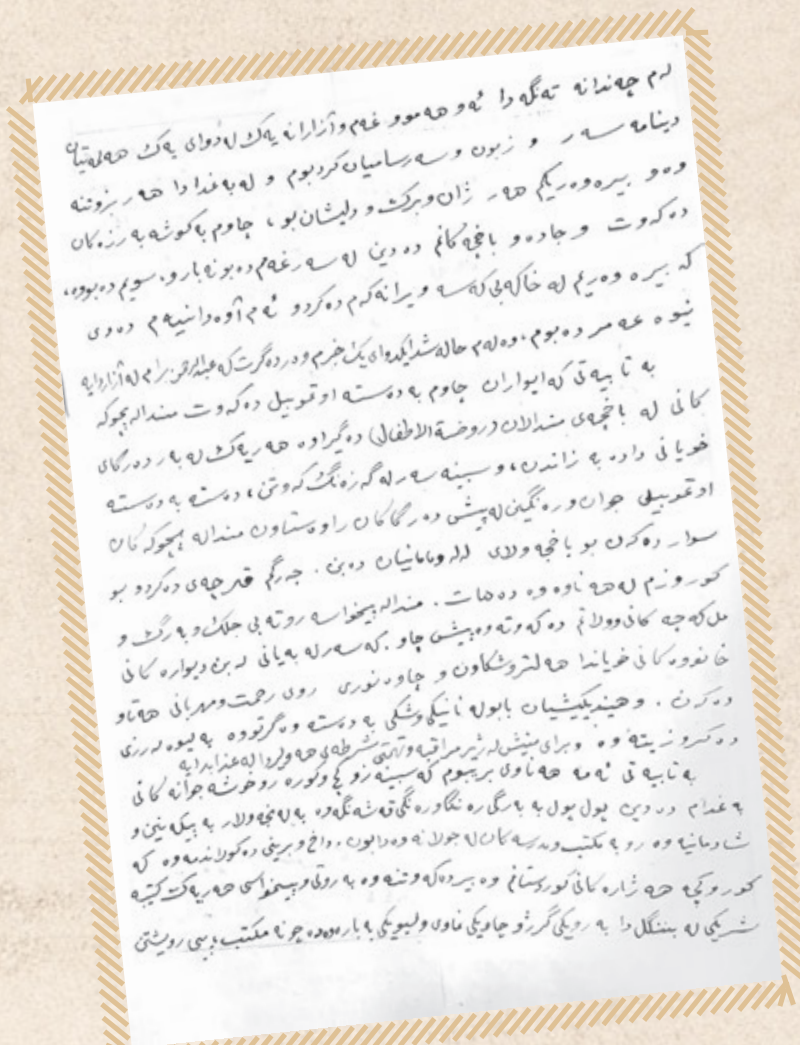 لەم چەندانە تەنگەدا ئەو هەموو غەم و ئازارانە یەک لەدوای یەک هەلمەتیان
دینامە سەر و زبون و سەرسامیان کردبوم و لە بەغدادا هەر بزوتنە
وەو بیرەوەریکم هەر ژان و برک و دلیشان بو، چاوم بە کوشە بە رزەکان
دەکەوت و جادەو باخچەکانم دەدین لە سەر غەم دەبونە بارو. سویم دەبووە،
کە بیرە وەریم لە خاکە بی کەسە ویرانەکەم دەکردو ئەم ئاوەدانییەم دەدی
نیوە عەمر دەبوم. وەلەم حالە شدا یک خرم و دردەگرت کە عبدالرحمن برام لە ئازاردایە
بە تایبەتی کە ایواران چاوم بە دەستە اوتموبیل دەکەوت مندالە بچوکە
کانی لە باخچەی مندالان (روضة الاطفال) دەگیراوە هەریەک لە بەر دەرگای
خویانی دادە بە زاندن، و سبینە سەر لەگە زەنگ کەوتن، دەستە بە دەستە
اوتموبیلی جوان و رەنگین لە پیش دەرگاکان راوەستاون مندالە بچوکەکان
سوار دەکەن بو باخچە و لای لەلەومامانیان دەبن. جەرگم قرچەی دەکردو بو
کوروزم لەهە ناوە وە دەهات. مندالە پیخواسە روتە بی جلک و بەرگ و
مل کەچە کانی وولاتم دەکەوتە وە پیش چاو. کە سەر لە بەیانی لە بن دیوارە کانی
خانووە کانی خویاندا هەلتروشکاون و چاوە نوری روی رحمت و مهربانی هەتاو
دەکەن. و هیندیکیشیان بابولە نانیکی وشکی بە دەستە وەگرتووە بە لیوە لەرزی
دەکروزیتەوە و برای منیش لە ژیر مراقبە و تهمتی شرطەی هەولیردا لە عذابدایە
بە تایبەتی ئەمە هەناوی بریبوم کە سبینە زو کچ و کورە روخوشە جوانە کانی
بە غدام دەدین پول پول بە بەرگی رەنگاورەنگی قەشەنگەوە بە لەنجەولار بە پیکەنین و
شادمانیە وە روبە مکتب و مدرسە کان لە جولانە وەدابون. داخ و برینی دەکولاندمەوە کە
کور و کچە هە ژارە کانی کوردستانم وە بیر دەکەوتنە وە بە روتی و پیخواسی هەریەکە کتیبە
شریکی لە بنننگل دا بە رویکی گرژو چاویکی ناوی و لیویکی بە بارەوە دە چونە مکتب بە بسی رویشتن